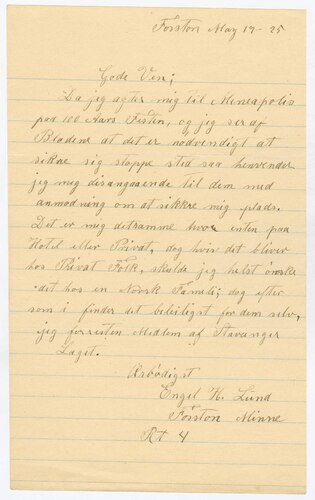 Forston May 19 - 25
Gode Ven;
Da jeg agter mig til Mineapolis
paa 100 Aars Festen, og jeg ser af
Bladene at det er nodvendigt at
sikre sig stoppe sted saa henvender
jeg mig disangaaende til dem med
anmodning om at sikkre mig plads.
Det er mig detsamme hvor enten paa
Hotel eller Privat, dog hvis det bliver
hos Privat Folk, skulde jeg helst önske
det hos en Norsk Famili; dog efter
som i finder det beleiligst for dem selv,
jeg forresten Medlem af Stavanger
Laget.
Ærbödigst
Engel H. Lund
Forston Minne
Rt 4